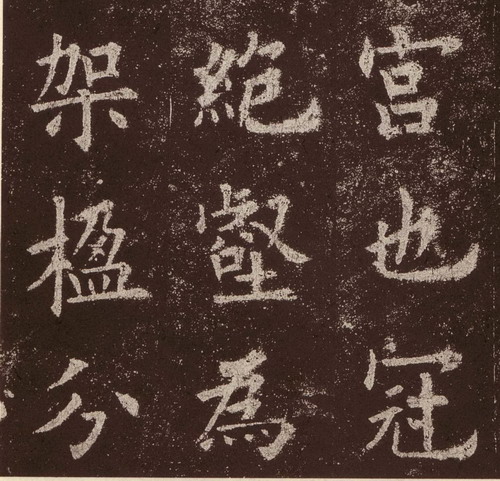 宮也冠
絶壑為
架楹分